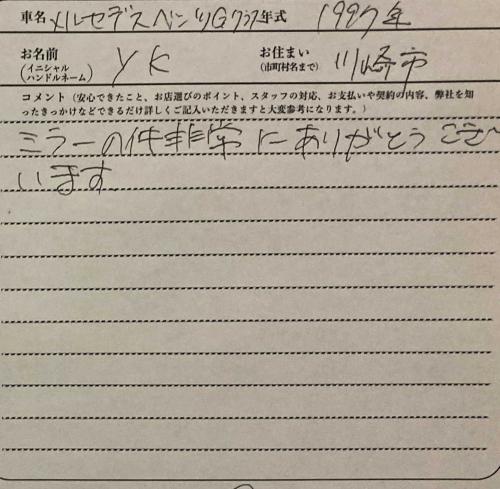 車名 メルセデスベンツGクラス 年式 1997年
お名前 YK お住まい 川崎市
(イニシャル (市町村名まで)
ハンドルネーム)
コメント(安心できたこと、お店選びのポイント、スタッフの対応、お支払いや契約の内容、弊社を知
ったきっかけなどできるだけ詳しくご記入いただきますと大変参考になります。)
ミラーの件非常にありがとうござ
います